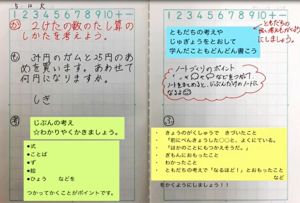 5 12 火
1 2 3 4 5 6 7 8 9 10 + −
め
2けたの数のたし算の
しかたを考えよう。
も 34円のガムと25円のあ
めを買います。あわせて
何円になりますか。
しき
考
じぶんの考え
☆わかりやすくかきましょう。
●式
●ことば
●ず
●絵
●ひょう などを
つかってかくことがポイントです。
1 2 3 4 5 6 7 8 9 10 + −
ともだちの考えや
じゅぎょうをとおして
学んだこともどんどん書こう
ともだちの
にしましょう。
ノートづくりのポイント
などをつかって、
ノートをまとめると、じぶんだけのノートに
なるよ
ふ
・ きょうのがくしゅうで きづいたこと
・ 「前にべんきょうした〇〇と、よくにている。
・ 「ほかのことにもつかえそうだ。」
・ ぎもんにおもったこと
・ わかったこと
・ ともだちの考えで「なるほど！」とおもったこと
などをかくようにしましょう！！